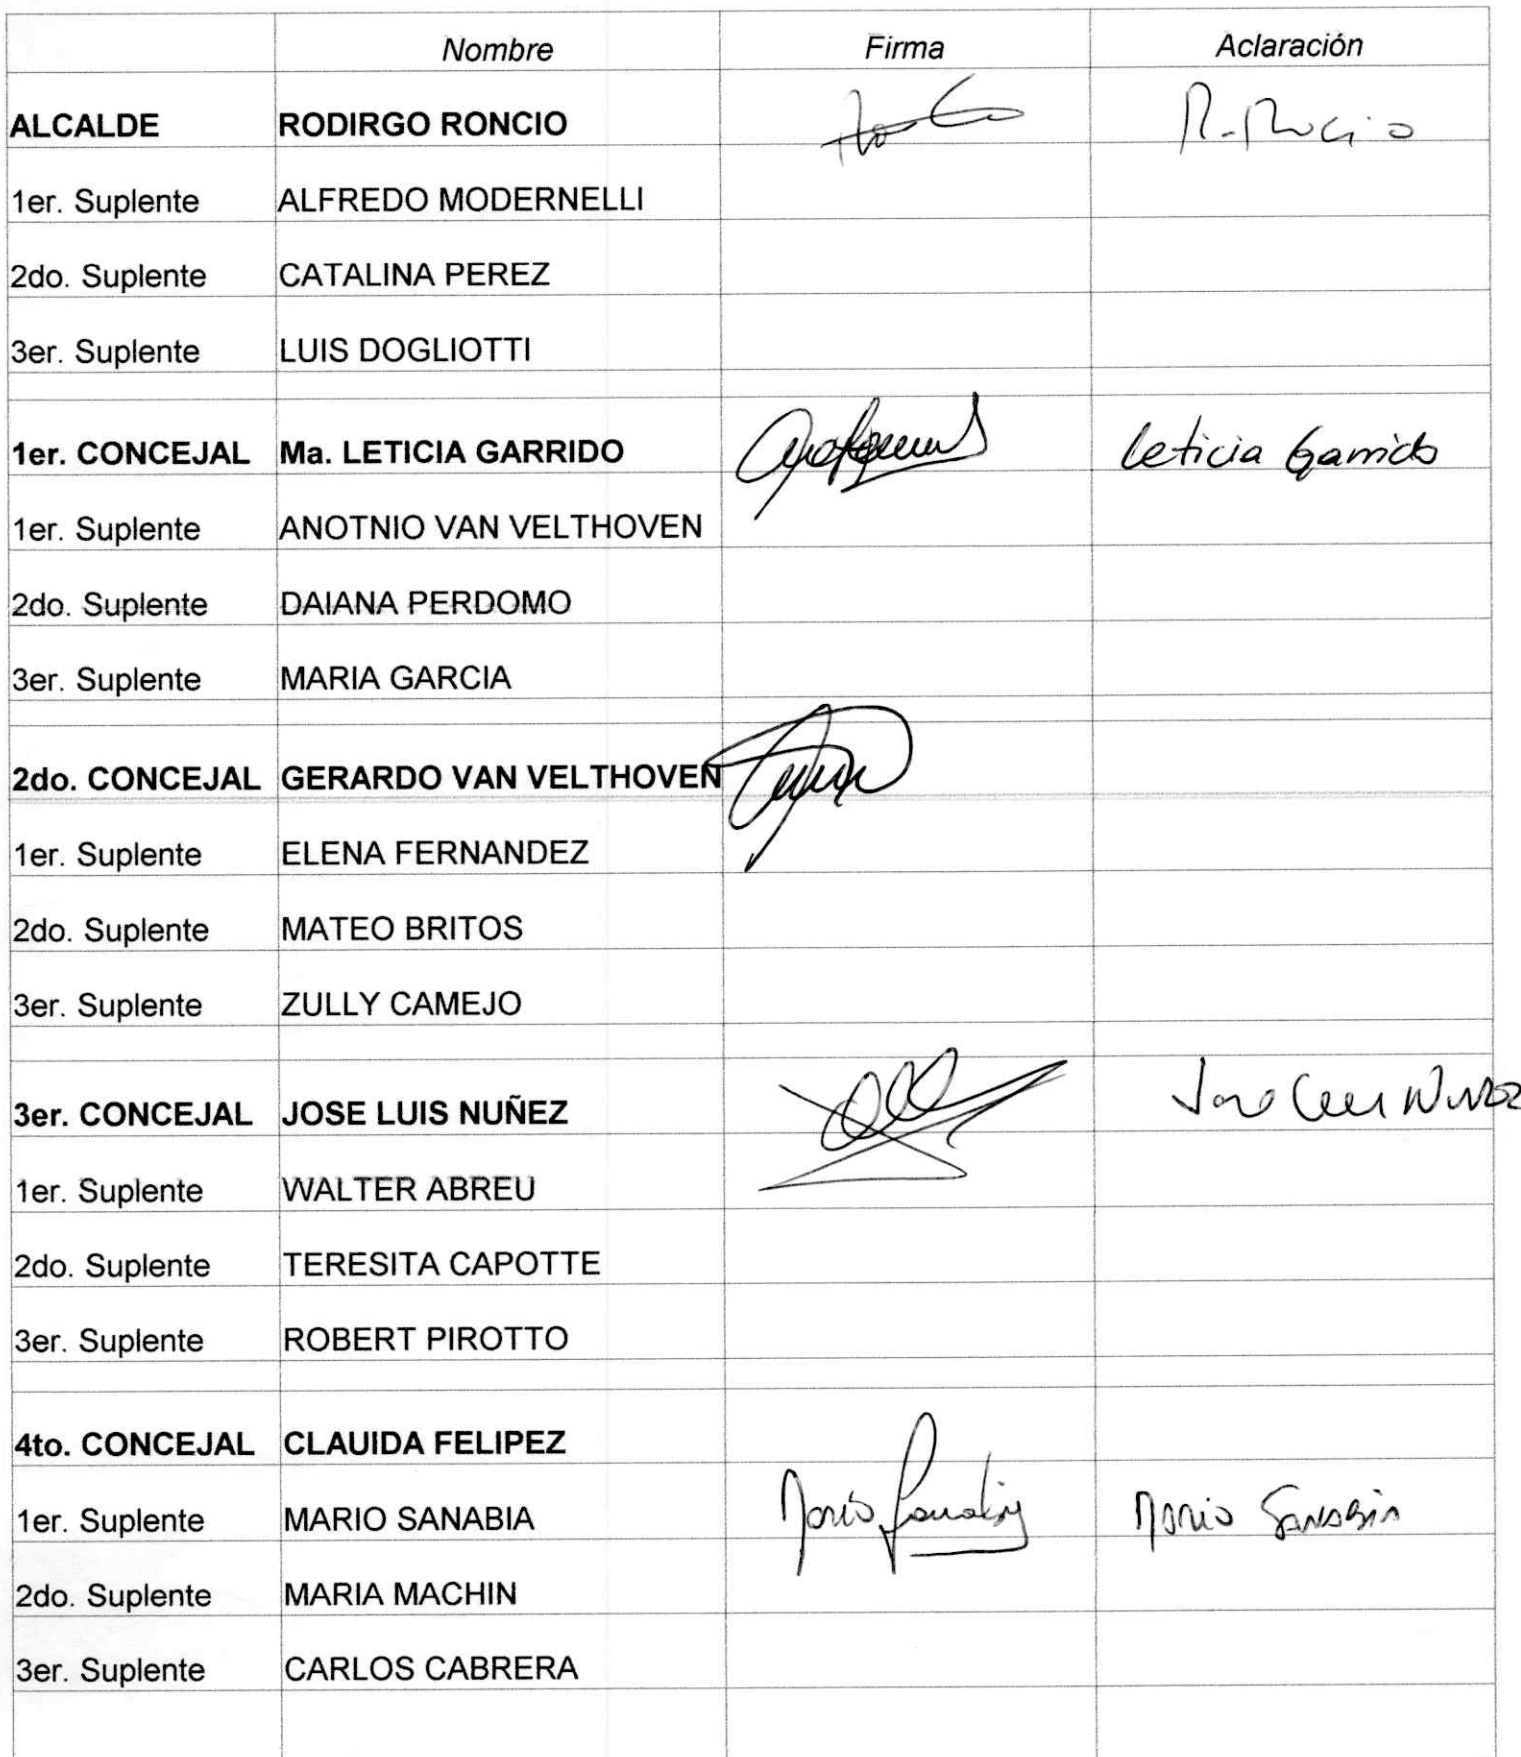 Nombre Firma Aclaración
ALCALDE RODIRGO RONCIO R. Roncio
1er. Suplente ALFREDO MODERNELLI
2do. Suplente CATALINA PEREZ
3er. Suplente LUIS DOGLIOTTI
1er. CONCEJAL Ma. LETICIA GARRIDO Leticia Garrido
1er. Suplente ANOTNIO VAN VELTHOVEN
2do. Suplente DAIANA PERDOMO
3er. Suplente MARIA GARCIA
2do. CONCEJAL GERARDO VAN VELTHOVEN
1er. Suplente ELENA FERNANDEZ
2do. Suplente MATEO BRITOS
3er. Suplente ZULLY CAMEJO
3er. CONCEJAL JOSE LUIS NUÑEZ Jose Luis Nuñez
1er. Suplente WALTER ABREU
2do. Suplente TERESITA CAPOTTE
3er. Suplente ROBERT PIROTTO
4to. CONCEJAL CLAUIDA FELIPEZ
1er. Suplente MARIO SANABIA Mario Sanabia Mario Sanabia
2do. Suplente MARIA MACHIN
3er. Suplente CARLOS CABRERA